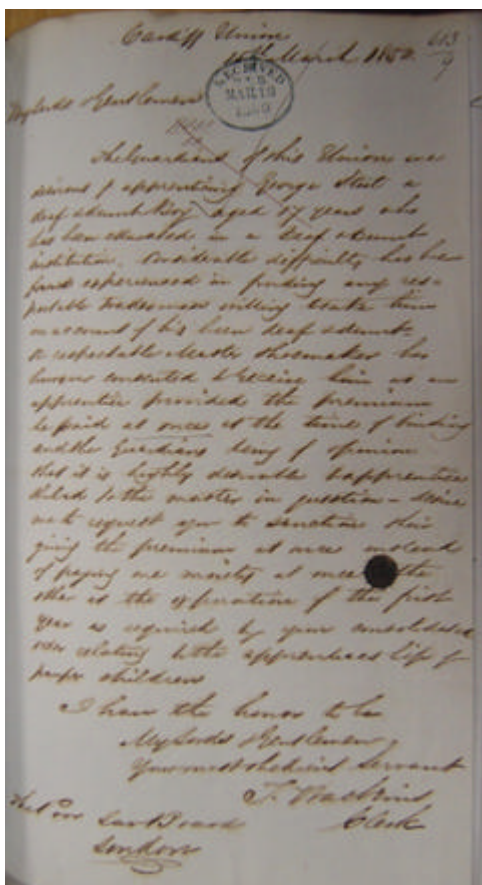 Cardiff Union
18th March 1850
613
9
RECEIVED
MAR 19
1850
My Lords & Gentlemen
The Guardians of this Union are
desirous of apprenticing George Steet a
deaf & dumb Boy aged 17 years who
has been educated in a deaf & dumb
institution. Considerable difficulty has been
found experienced in finding any res-
pectable tradesman willing to take him
on account of his been deaf & dumb.
A respectable Master Shoemaker has
however consented to receive him as an
apprentice provided the premium
be paid at once at the time of binding
and the Guardians being of opinion
that it is highly desirable to apprentice
the lad to the master in question - desire
me to request you to sanction their
giving the premium at once instead
of paying one moiety at once the
other at the expiration of the first
year as required by your consolidated
order relating to the apprenticeship of
pauper children
I have the honor to be
My Lords & Gentlemen
Your most obedient Servant
T. Watkins
Clerk
The Poor Law Board
London